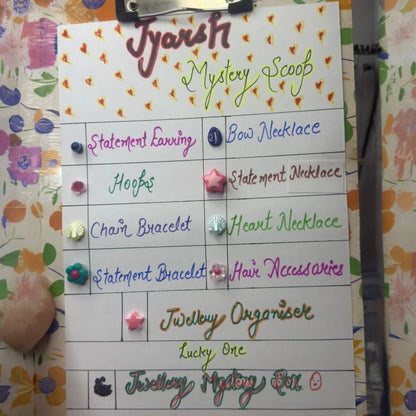 Jyarsh
Mystery Scoop
Statement Earring
Bow Necklace
Hoops
Statement Necklace
Chain Bracelet
Heart Necklace
Statement Bracelet
Hair Accessories
Jwellery Organiser
Lucky One
Jwellery Mystery Box